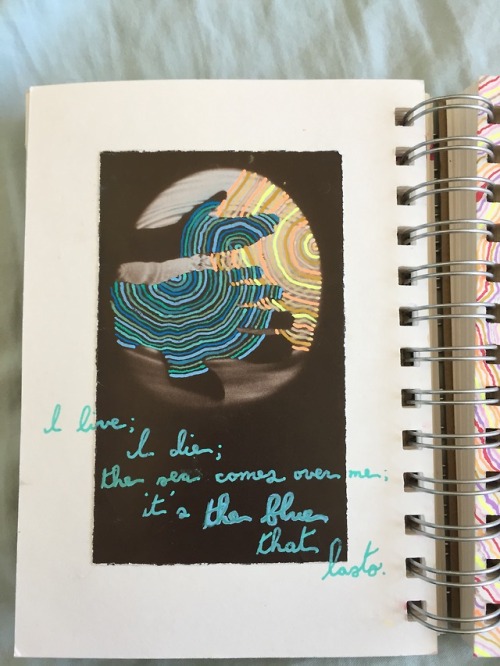 I live;
I die;
the sea comes over me;
it's the blue
that
lasts.